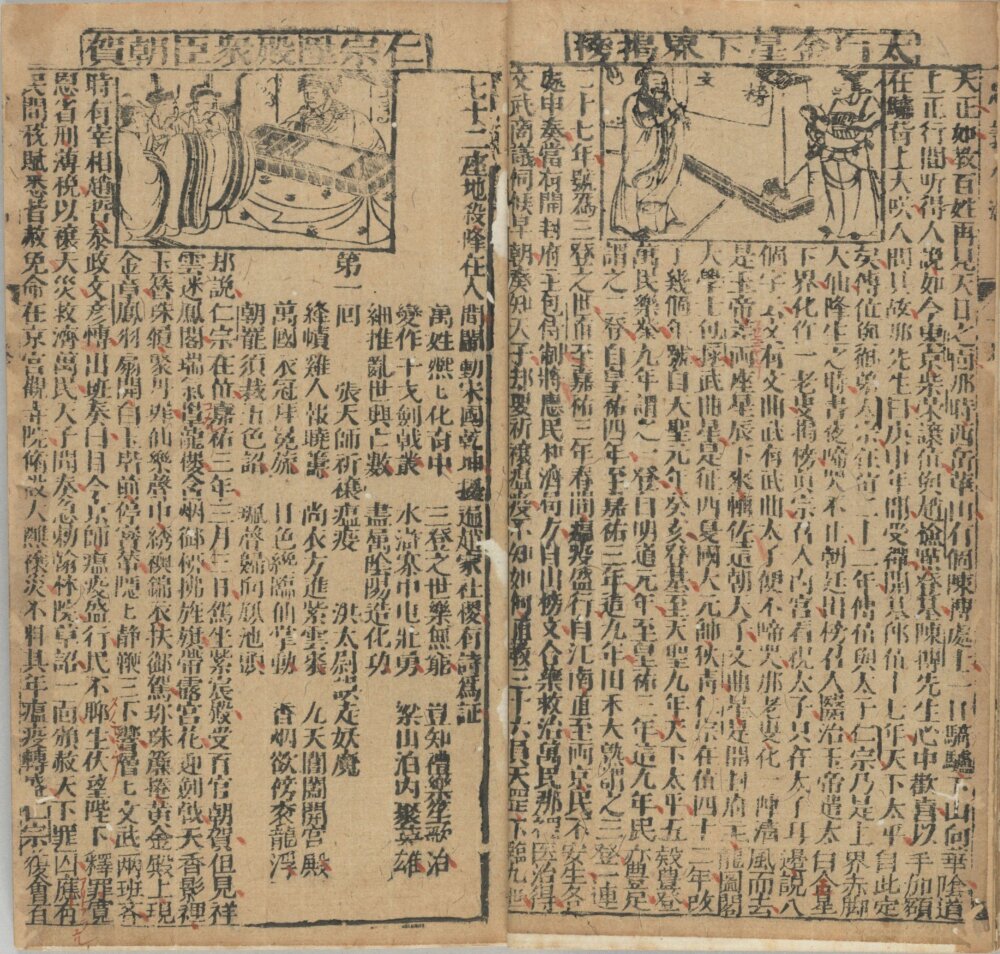 太白金星下來揭榜
天正如教百姓再見天日之面那時西岳華山有個陳摶處士一日騎驢下山向華陰道
上正行間听得人說如今東京柴榮讓位與趙檢點登基陳摶先生心中歡喜以手加額
在驢背上大咲人問其故那先生曰庚申年間受禪開基即位一十七年天下太平自此定
矣傳位與御弟太宗在位二十二年傳位與太子仁宗乃是上界赤脚
大仙降生之時晝夜啼哭不止朝廷出榜召人醫治玉帝遣太白金星
下界化作一老叟揭榜真宗召入內宮看視太子只在太子耳邊說八
個字云文有文曲武有武曲太子便不啼哭那老叟化一陣清風而去
是玉帝差兩座星辰下來輔佐這朝天子文曲星是開封府主龍圖閣
大學士包拯武曲星是征西夏國大元帥狄青仁宗在位四十二年改
了幾個年號自天聖元年癸亥登基至天聖九年天下太平五穀豊登
萬民樂業九年謂之一登自明道元年至皇祐三年這九年民亦豊足
謂之二登自皇祐四年至嘉祐二年這九年田禾大熟謂之三登一連
二十七年號為三登之世直至嘉祐三年春間瘟疫盛行自江南直至兩京民不安生各
處申奏當有開封府主包侍制將惠民和濟局方自出榜文合藥救治萬民那裡医治得
文武商議伺候早朝奏知天子却要祈禳瘟疫不知如何直教三十六員天罡下臨九地
文榜
仁宗陞殿眾臣朝賀
七十二座地殺降在人間鬧動宋國乾坤擾遍趙家社稷有詩為証
萬姓熙熙化育中 三登之世樂無窮 豈知禮樂笙歌治
變作干戈劍戟叢 水滸寨中屯壯勇 梁山泊內聚英雄
細推亂世興亡數 盡屬陰陽造化功
第一回 張天師祈禳瘟疫 洪太尉誤走妖魔
絳幘雞人報曉籌 尚衣方進紫雲裘 九天閶闔開宮殿
萬國衣冠拜冕旒 日色纔臨仙掌動 香烟欲傍袞龍浮
朝罷須裁五色詔 珮聲歸向鳳池頭
那說仁宗在位嘉祐三年三月三日駕坐紫宸殿受百官朝賀但見祥
雲迷鳳閣瑞氣罩龍樓含烟御柳拂旌旗帶露宮花迎劍戟天香影裡
玉簪珠履聚丹墀仙樂聲中綉襖錦衣扶御駕珍珠簾捲黃金殿上現
金轝鳳羽扇開白玉堦前停寶輦隱上靜鞭三下響層上文武兩班齐
時有宰相趙哲叅政文彥博出班奏曰目今京師瘟疫盛行民不聊生伏望陛下釋罪寬
恩省刑薄稅以禳天災救濟萬民天子聞奏急勑翰林院草詔一面頒赦天下罪囚應有
民間稅賦悉皆赦免命在京宮觀寺院修設大醮禳災不料其年瘟疫轉盛仁宗復會百